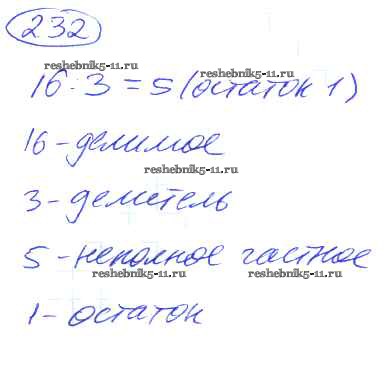 232
reshebnik5-11.ru
reshebnik5-11.ru
16 : 3 = 5 (остаток 1)
16 - делимое
reshebnik5-11.ru
3 - делитель
5 - неполное частное
reshebnik5-11.ru reshebnik5-11.ru
1 - остаток